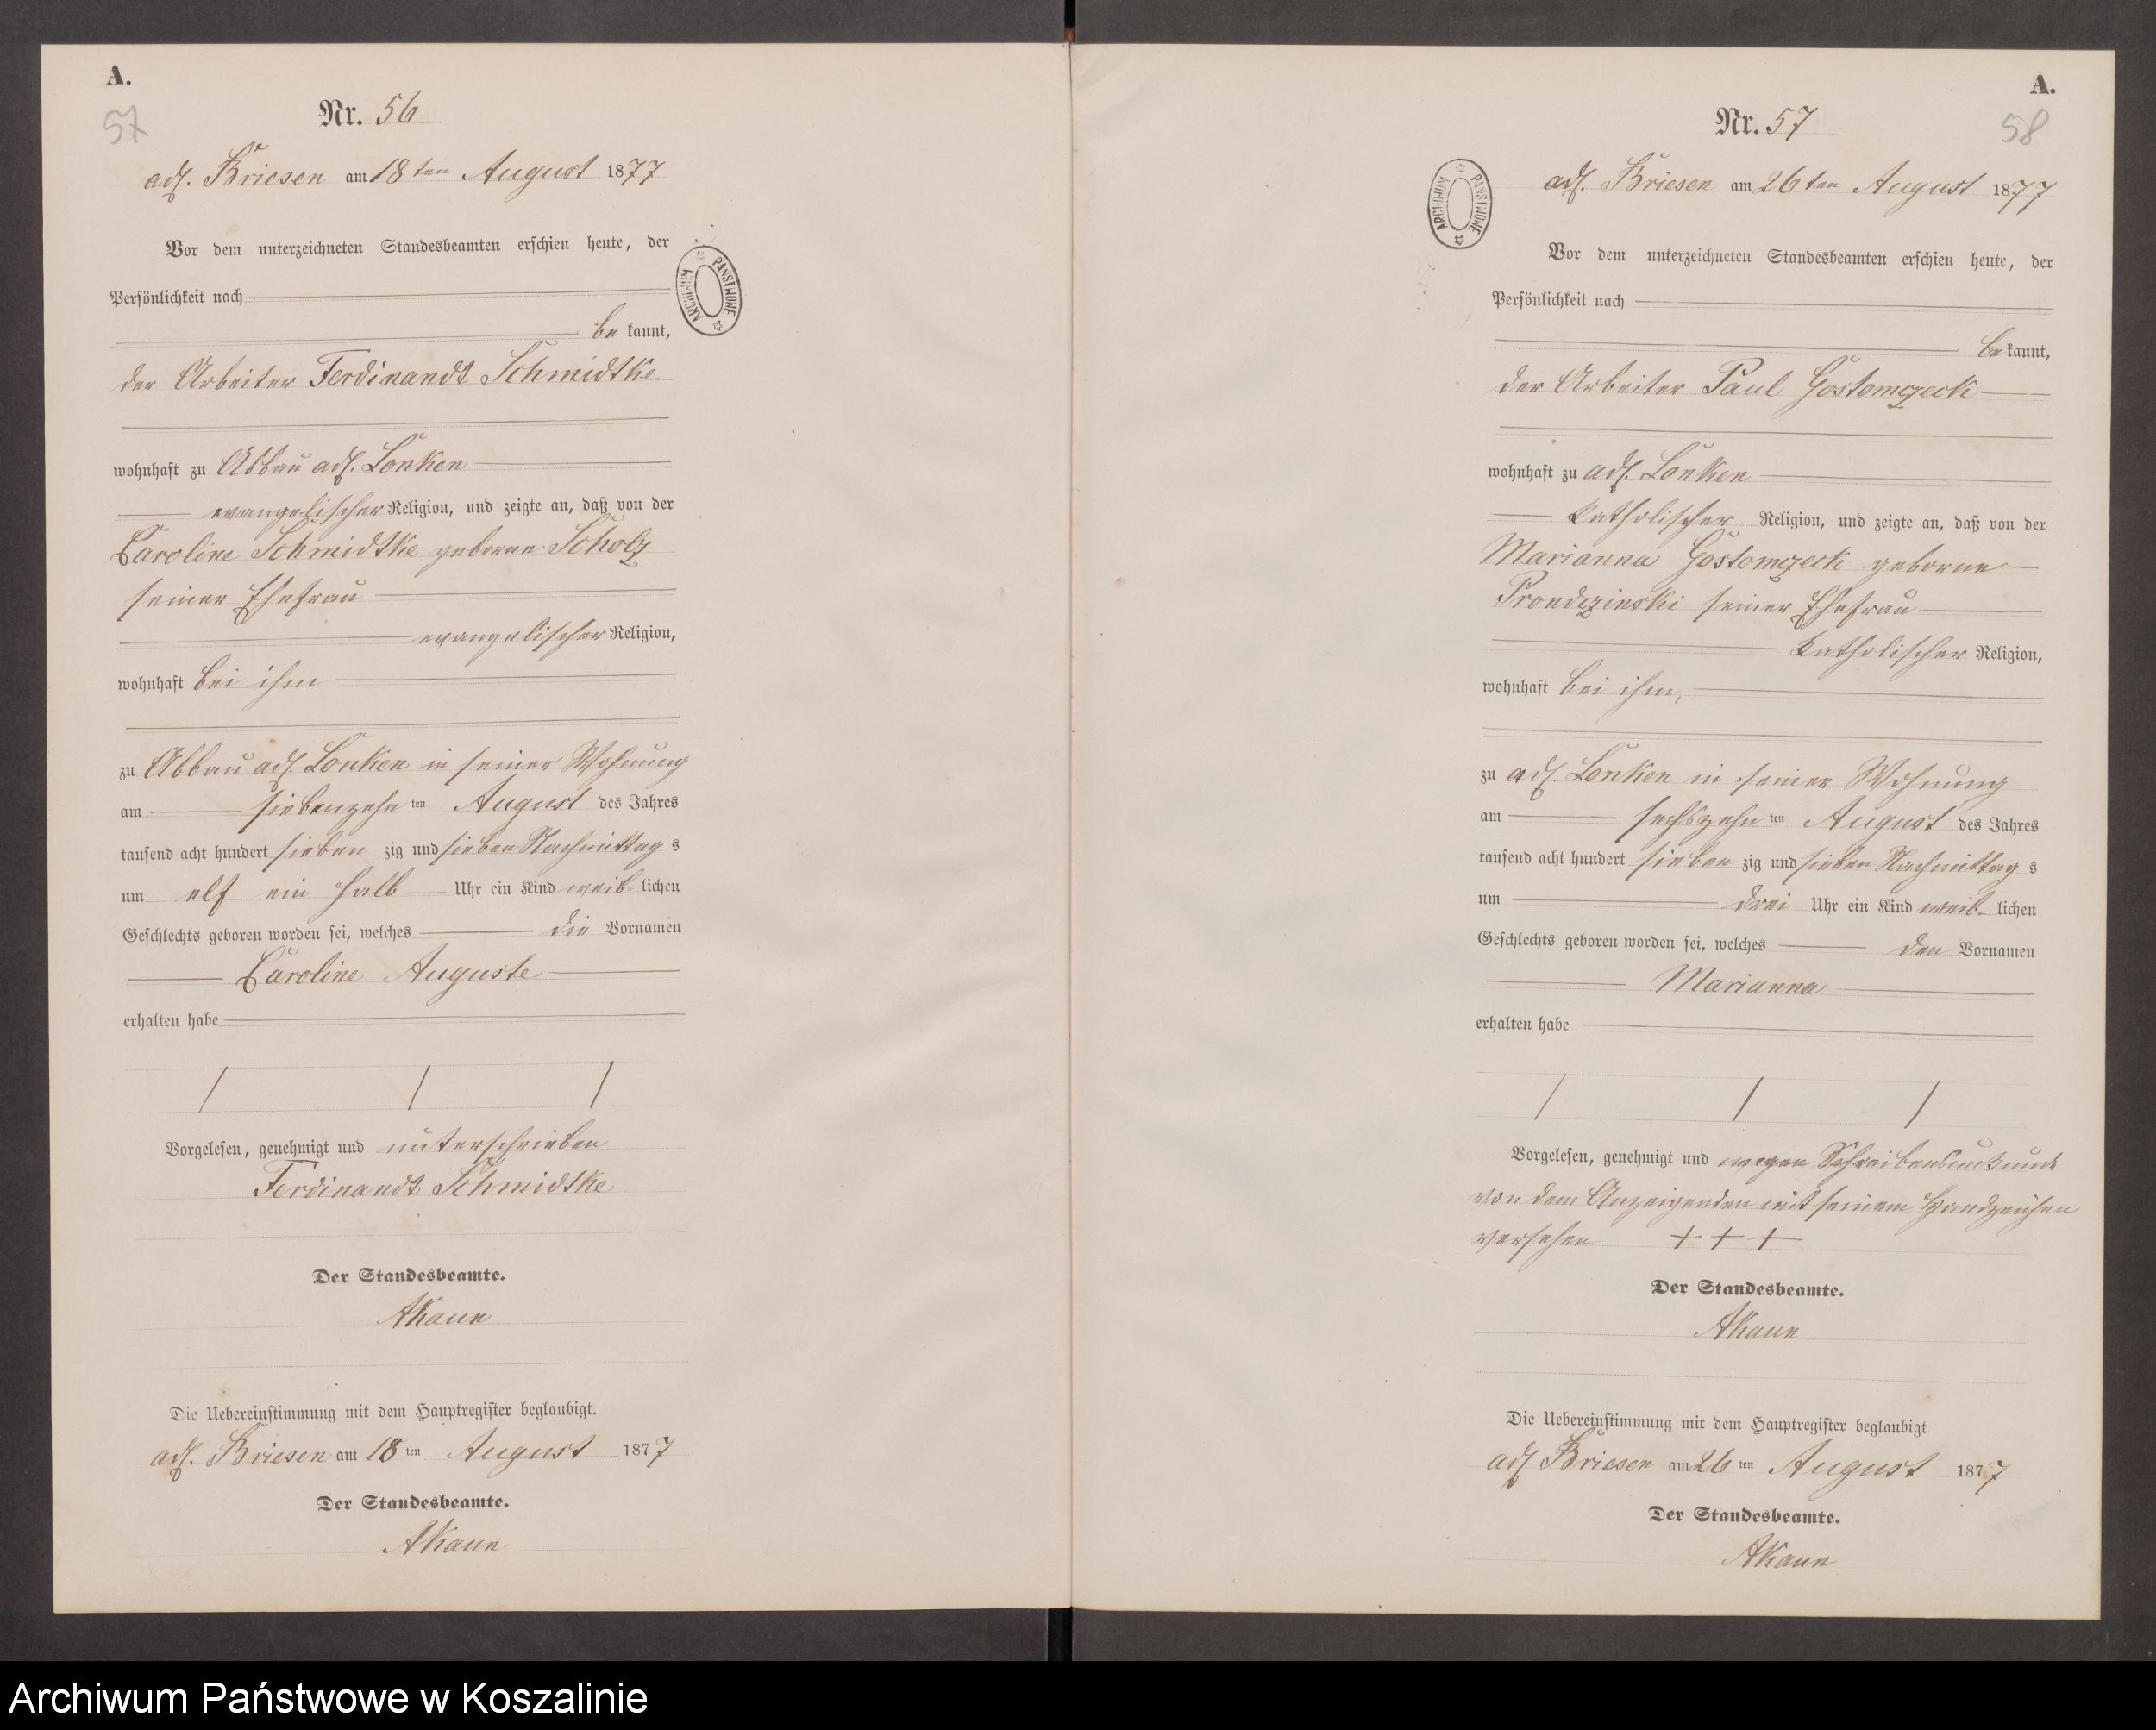 A.
57
Nr. 56
adl. Briesen am 18ten August 1877
Vor dem unterzeichneten Standesbeamten erschien heute, der
Persönlichkeit nach
be kannt,
der Arbeiter Ferdinandt Schmidtke
wohnhaft zu Abbau adl. Lonken
evangelischer Religion, und zeigte an, daß von der
Caroline Schmidtke geborne Scholz
seiner Ehefrau
evangelischer Religion,
wohnhaft bei ihm
zu Abbau adl. Lonken in seiner Wohnung
am siebenzehn ten August des Jahres
tausend acht hundert sieben zig und sieben Nachmittag s
um elf ein halb Uhr ein Kind weib- lichen
Geschlechts geboren worden sei, welches die Vornamen
Caroline Auguste
erhalten habe
Vorgelesen, genehmigt und unterschrieben
Ferdinandt Schmidtke
Der Standesbeamte.
AKaun
Die Uebereinstimmung mit dem Hauptregister beglaubigt.
adl. Briesen am 18 ten August 1877
Der Standesbeamte.
AKaun
ARCHIWUM PAŃSTWOWE
A.
58
Nr. 57
adl. Briesen am 26ten August 1877
Vor dem unterzeichneten Standesbeamten erschien heute, der
Persönlichkeit nach
be kannt,
der Arbeiter Paul Gostomczeck
wohnhaft zu adl. Lonken
katholischer Religion, und zeigte an, daß von der
Marianna Gostomczeck geborne
Prondzinski seiner Ehefrau
katholischer Religion,
wohnhaft bei ihm,
zu adl. Lonken in seiner Wohnung
am sechszehn ten August des Jahres
tausend acht hundert sieben zig und sieben Nachmittag s
um drei Uhr ein Kind weib- lichen
Geschlechts geboren worden sei, welches den Vornamen
Marianna
erhalten habe
Vorgelesen, genehmigt und wegen Schreibensunkunde
von dem Anzeigenden mit seinem Handzeichen
versehen + + +
Der Standesbeamte.
AKaun
Die Uebereinstimmung mit dem Hauptregister beglaubigt
adl Briesen am 26 ten August 1877
Der Standesbeamte.
AKaun
ARCHIWUM PAŃSTWOWE
Archiwum Państwowe w Koszalinie